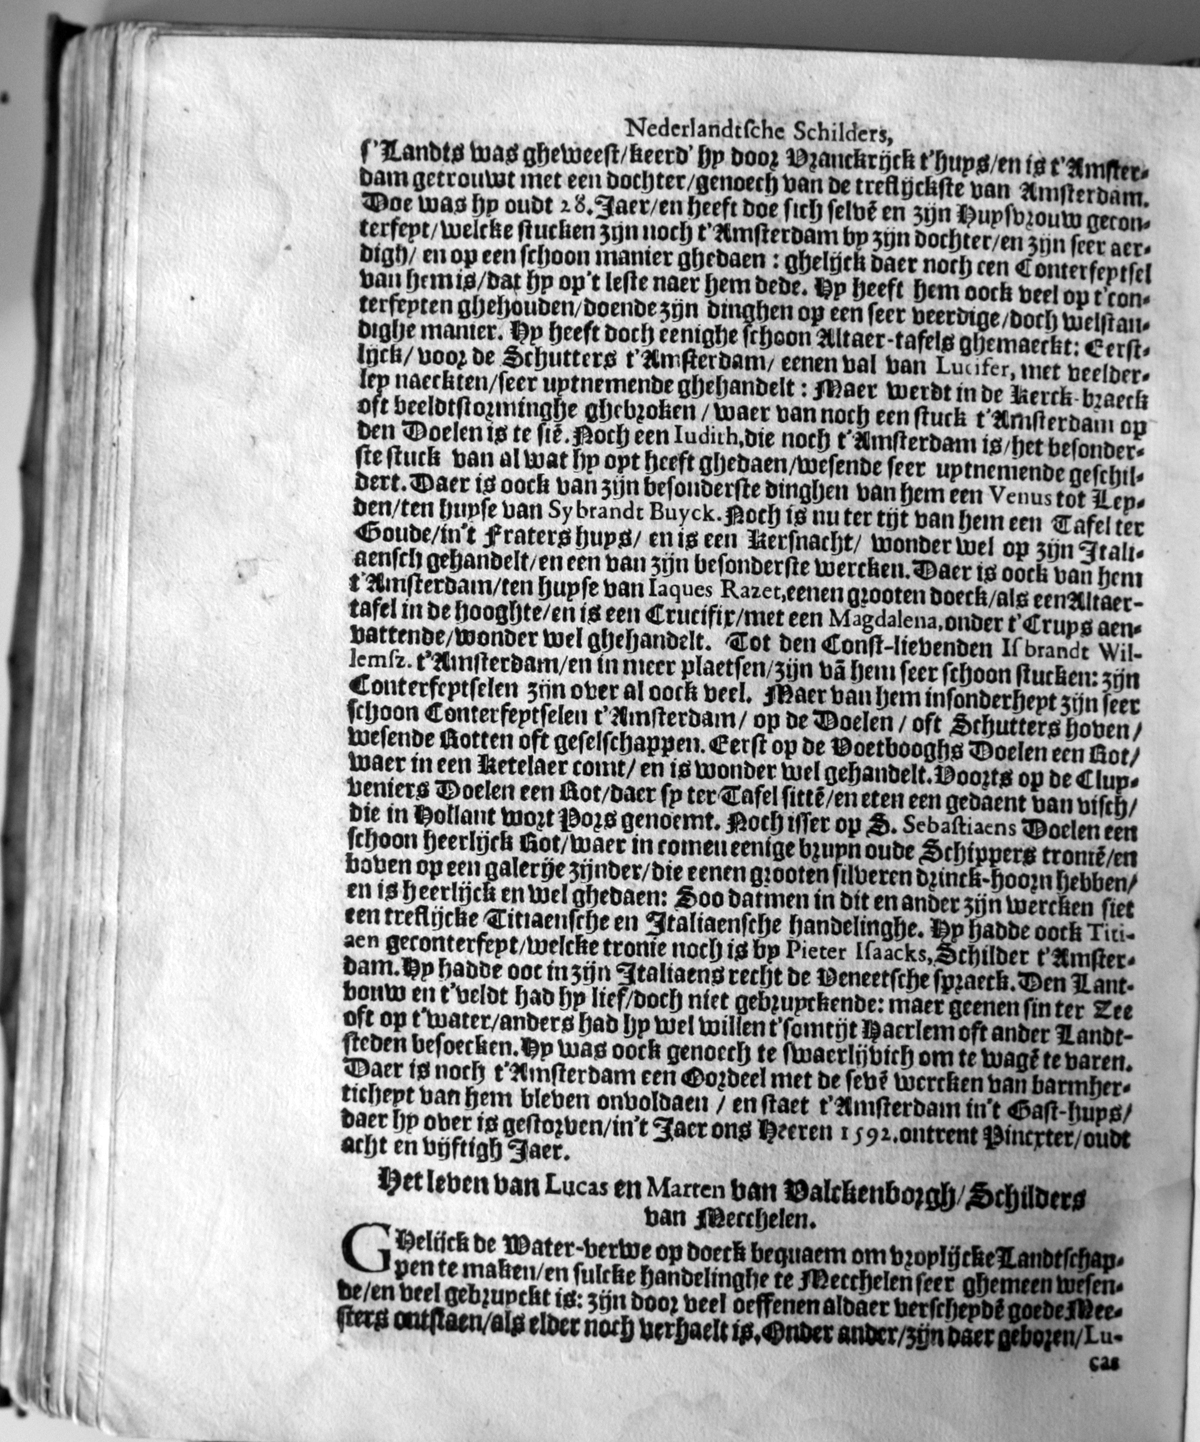 Nederlandtsche Schilders,
s'Landts was gheweest/keerd' hy door Vranckrijck t'huys/en is t'Amster-
dam getrouwt met een dochter/genoech van de treflijckste van Amsterdam.
Doe was hy oudt 28. Jaer/en heeft doe sich selvē en zijn Huysvrouw gecon-
terfeyt/welcke stucken zijn noch t'Amsterdam by zijn dochter/en zijn seer aer-
digh/ en op een schoon manier ghedaen : ghelijck daer noch een Conterfeytsel
van hem is/dat hy op't leste naer hem dede. Hy heeft hem oock veel op t'con-
terfeyten ghehouden/doende zijn dinghen op een seer veerdige/doch welstan-
dighe manier. Hy heeft doch eenighe schoon Altaer-tafels ghemaeckt: Eerst-
lijck/ voor de Schutters t'Amsterdam/ eenen val van Lucifer, met veelder-
ley naeckten/seer uytnemende ghehandelt : Maer werdt in de Kerck-braeck
oft beeldtstorminghe ghebroken / waer van noch een stuck t'Amsterdam op
den Doelen is te siē. Noch een Iudith,die noch t'Amsterdam is/het besonder-
ste stuck van al wat hy oyt heeft ghedaen/wesende seer uytnemende geschil-
dert. Daer is oock van zijn besonderste dinghen van hem een Venus tot Ley-
den/ten huyse van Sybrandt Buyck. Noch is nu ter tijt van hem een Tafel ter
Goude/in't Fraters huys/ en is een Kersnacht/ wonder wel op zijn Itali-
aensch gehandelt/en een van zijn besonderste wercken. Daer is oock van hem
t'Amsterdam/ten huyse van Iaques Razet,eenen grooten doeck/als een Altaer-
tafel in de hooghte/en is een Crucifix/met een Magdalena,onder t'Cruys aen-
vattende/wonder wel ghehandelt. Tot den Const-lievenden Isbrandt Wil-
lemsz. t'Amsterdam/en in meer plaetsen/zijn vā hem seer schoon stucken: zijn
Conterfeytselen zijn over al oock veel. Maer van hem insonderheyt zijn seer
schoon Conterfeytselen t'Amsterdam/ op de Doelen / oft Schutters hoven/
wesende Rotten oft geselschappen. Eerst op de Voetbooghs Doelen een Rot/
waer in een Ketelaer comt/ en is wonder wel gehandelt. Voorts op de Cluy-
veniers Doelen een Rot/daer sy ter Tafel sittē/en eten een gedaent van visch/
die in Hollant wort Pors genoemt. Noch isser op S. Sebastiaens Doelen een
schoon heerlijck Rot/waer in comen eenige bruyn oude Schippers troniē/en
boven op een galerye zijnder/die eenen grooten silveren drinck-hoorn hebben/
en is heerlijck en wel ghedaen: Soo datmen in dit en ander zijn wercken siet
een treflijcke Titiaensche en Italiaensche handelinghe. Hy hadde oock Titi-
aen geconterfeyt/welcke tronie noch is by Pieter Isaacks,Schilder t'Amster-
dam. Hy hadde ooc in zijn Italiaens recht de Veneetsche spraeck. Den Lant-
bouw en t'veldt had hy lief/doch niet gebruyckende: maer geenen sin ter Zee
oft op t'water/anders had hy wel willen t'somtijt Haerlem oft ander Landt-
steden besoecken. Hy was oock genoech te swaerlijvich om te wagē te varen.
Daer is noch t'Amsterdam een Oordeel met de sevē wercken van barmher-
tichept van hem bleven onvoldaen / en staet t'Amsterdam in't Gast-huys/
daer hy over is gestorven/in't Jaer ons Heeren 1592.ontrent Pincxter/oudt
acht en vijftigh Jaer.
Het leven van Lucas en Marten van Valckenborgh/Schilders
van Mecchelen.
GHelijck de Water-verwe op doeck bequaem om vroplijcke Landtschap-
pen te maken/en sulcke handelinghe te Mecchelen seer ghemeen wesen-
de/en veel gebruyckt is: zijn door veel oeffenen aldaer verscheydē goede Mee-
sters ontstaen/als elder noch verhaelt is, Onder ander/zijn daer geboren/Lu-
cas